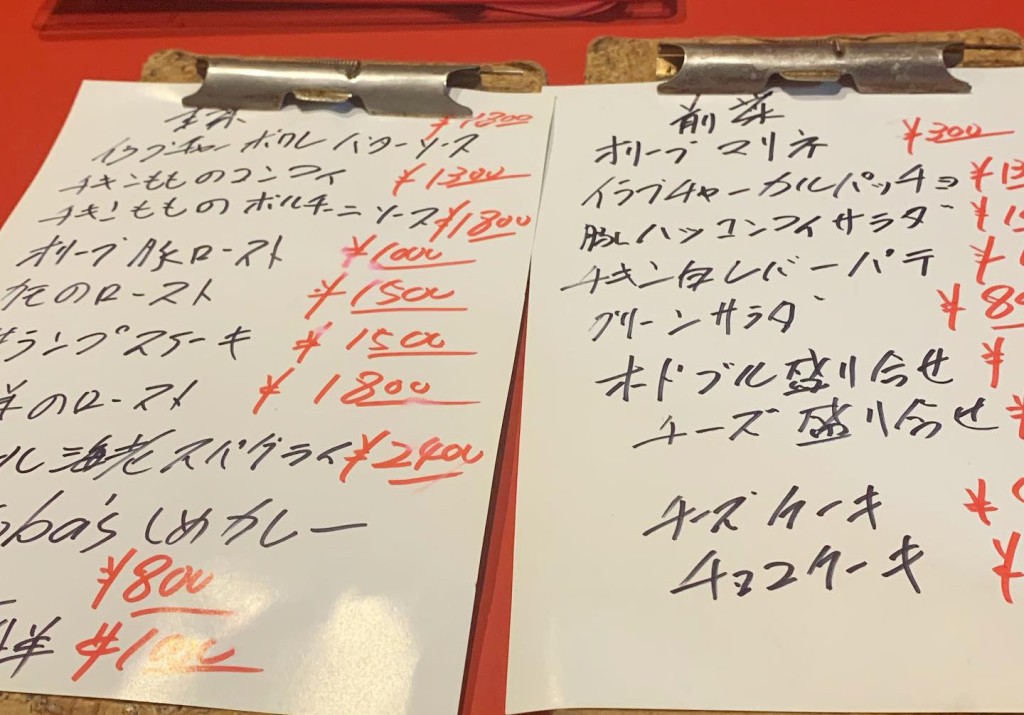 ¥1300
イラブチャーポワレ バターソース
チキンもものコンフィ ¥1300
チキンもものポルチーニソース ¥1300
オリーブ豚ロースト ¥1000
カモのロースト ¥1500
ランプステーキ ¥1500
羊のロースト ¥1800
海老スパグラライ ¥2400
しめカレー
¥800
¥100
前菜
オリーブマリネ ¥300
イラブチャーカルパッチョ
豚ハツコンフィサラダ
チキン白レバーパテ
グリーンサラダ
オードブル盛り合せ
チーズ盛り合せ
チーズケーキ
チョコケーキ